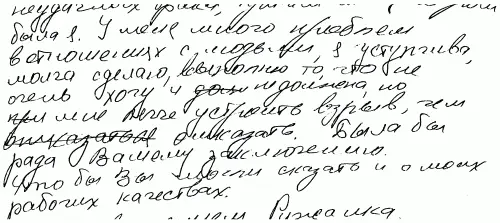 была я. У меня много проблем
в отношениях с людьми, я уступчива,
молча сделаю, выполню то, что не
очень хочу и не должна, но
мне легче устроить взрыв, чем
отказать. Была бы
рада Вашему заключению.
Что бы Вы могли сказать и о моих
рабочих качествах.